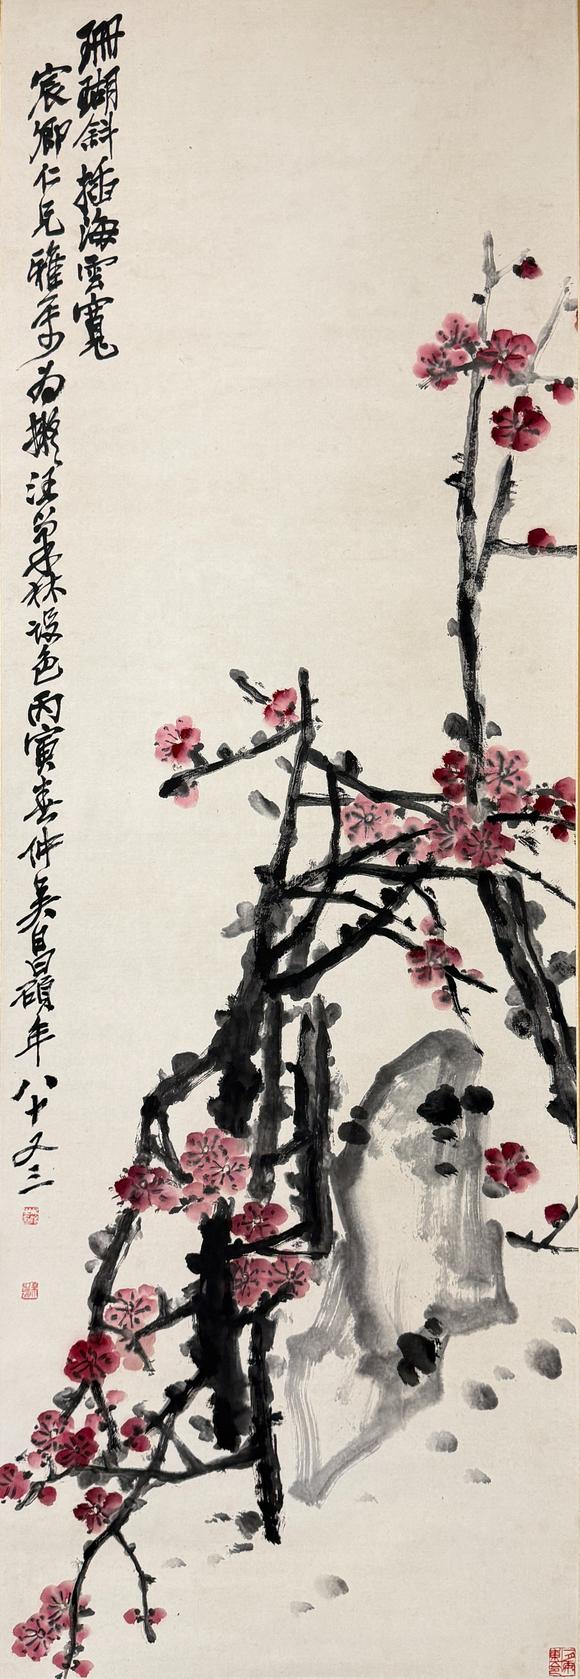 珊瑚斜插海雲寬
宸卿仁兄雅屬為擬汪巢林設色丙寅春仲吳昌碩年八十又三